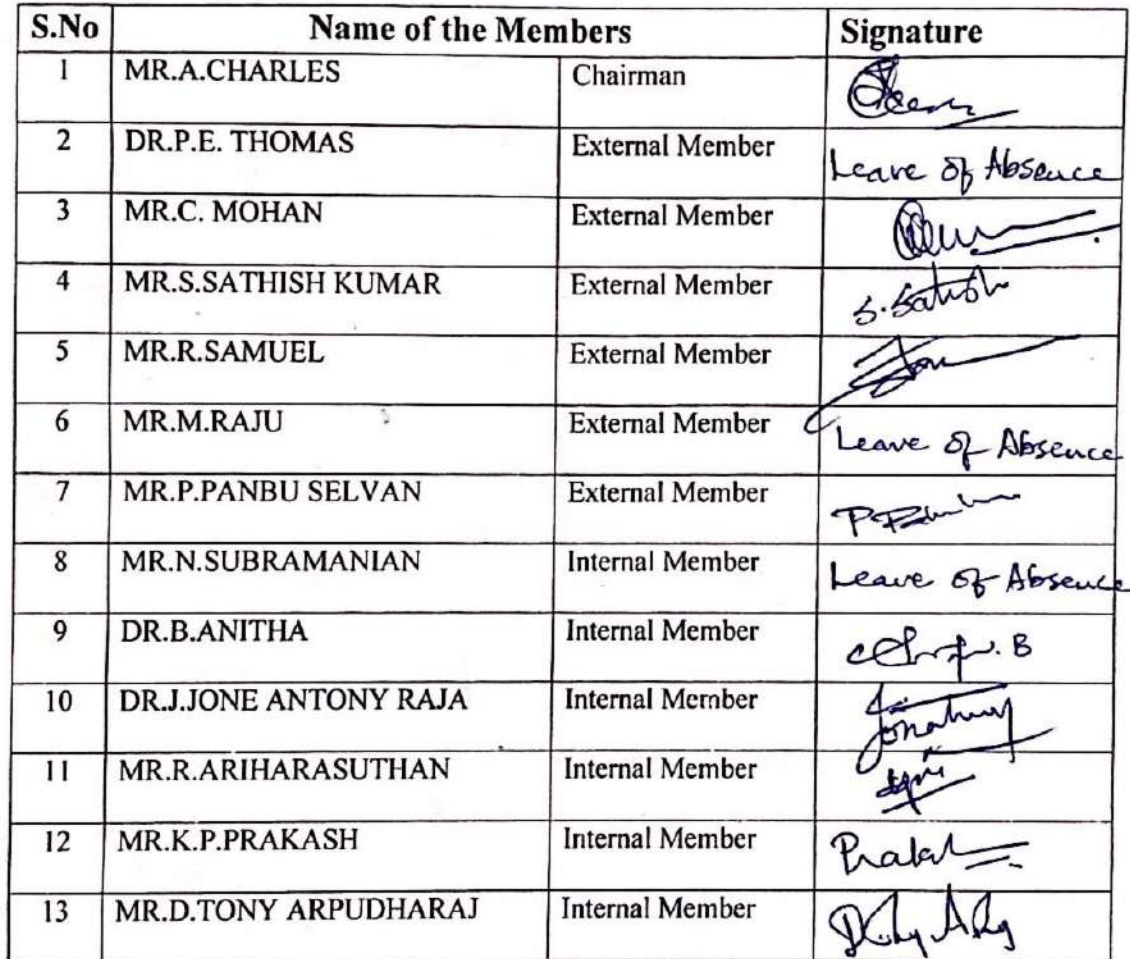 S.No Name of the Members Signature
1 MR.A.CHARLES Chairman
2 DR.P.E. THOMAS External Member Leave of Absence
3 MR.C. MOHAN External Member
4 MR.S.SATHISH KUMAR External Member S.Satish
5 MR.R.SAMUEL External Member
6 MR.M.RAJU External Member Leave of Absence
7 MR.P.PANBU SELVAN External Member
8 MR.N.SUBRAMANIAN Internal Member Leave of Absence
9 DR.B.ANITHA Internal Member
10 DR.J.JONE ANTONY RAJA Internal Member
11 MR.R.ARIHARASUTHAN Internal Member
12 MR.K.P.PRAKASH Internal Member
13 MR.D.TONY ARPUDHARAJ Internal Member